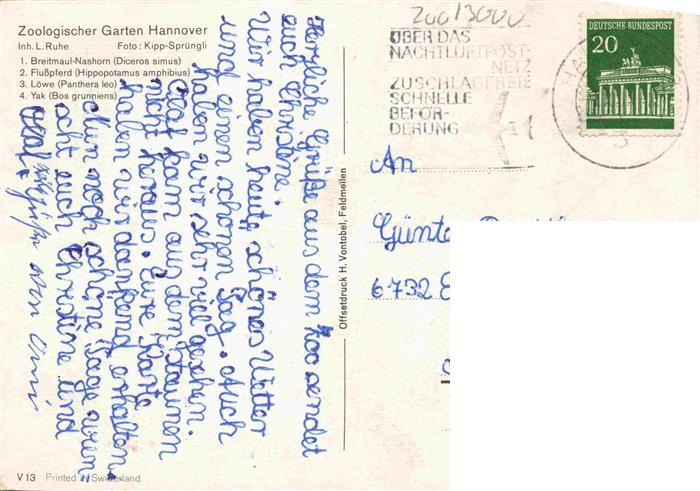 Zoologischer Garten Hannover
Inh. L. Ruhe Foto: Kipp-Sprüngli
1. Breitmaul-Nashorn (Diceros simus)
2. Flußpferd (Hippopotamus amphibius)
3. Löwe (Panthera leo)
4. Yak (Bos grunniens)
Herzliche Grüße aus dem Zoo sendet
auch Christine.
Wir haben heute schönes Wetter
und einen schönen Tag. Auch
haben wir sehr viel gesehen.
Olaf kam aus dem Staunen
nicht heraus. Eure Karte
haben wir dankend erhalten.
Nun noch schöne Tage wün=
scht euch Christine und
Olaf.
V 13 Printed in Switzerland
Offsetdruck H. Vontobel, Feldmeilen
Zoo/3000
ÜBER DAS
NACHTLUFTPOST-
NETZ
ZUSCHLAGFREIE
SCHNELLE
BEFÖR-
DERUNG
DEUTSCHE BUNDESPOST
20
3
An
6732